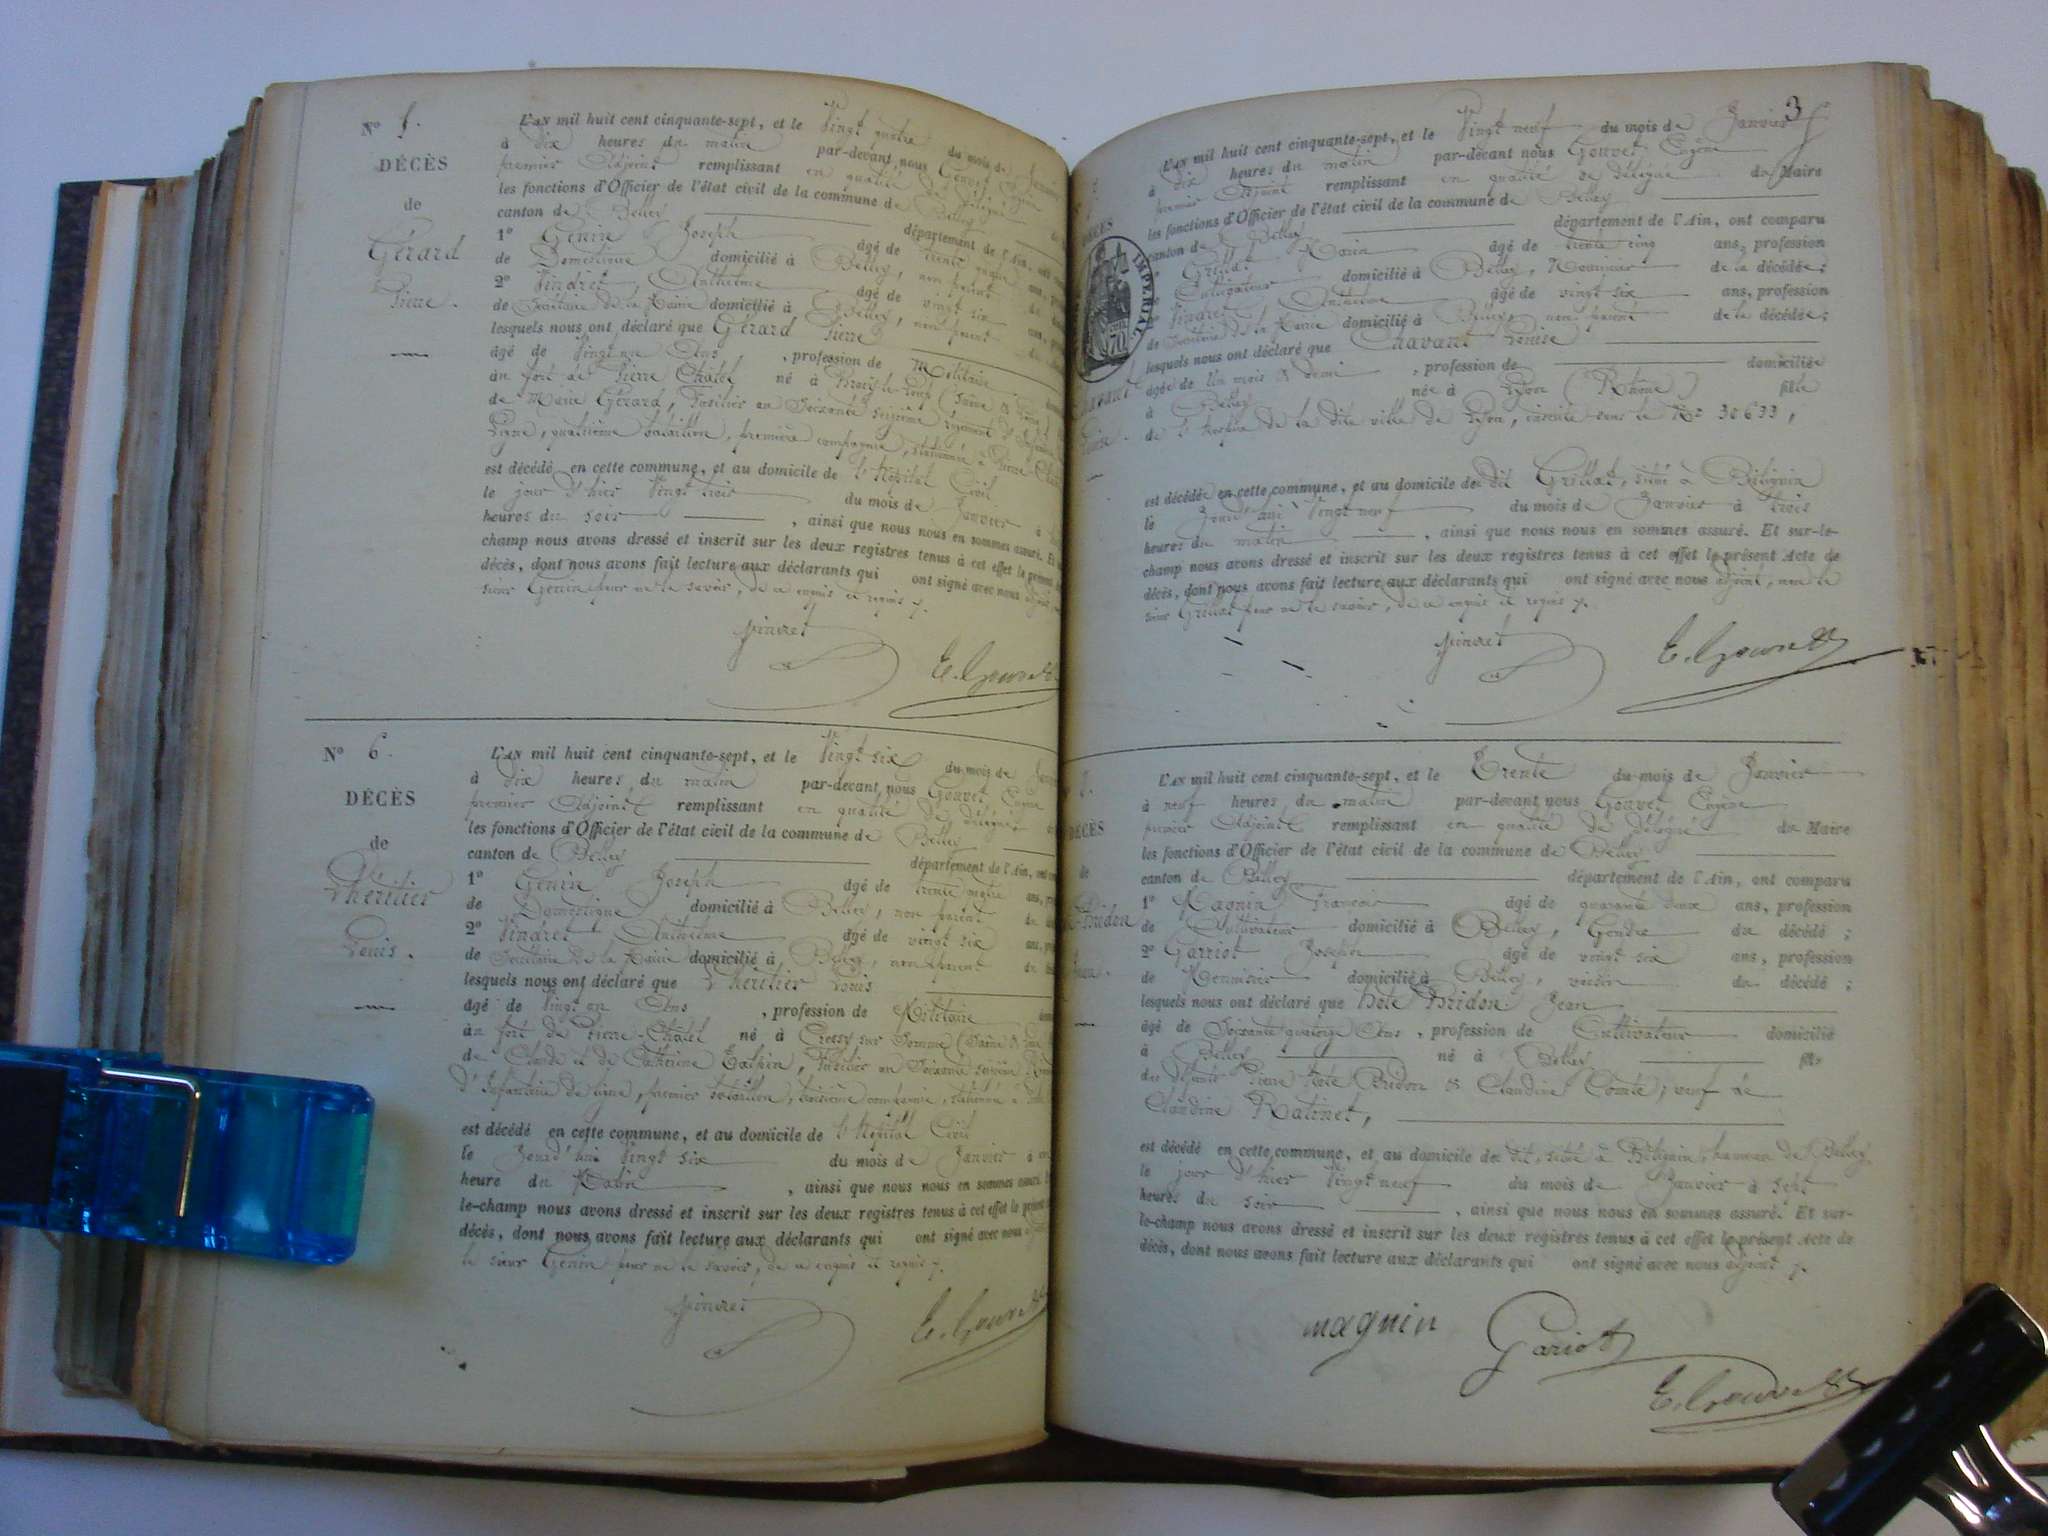 N° 5.
DÉCÈS
de
Gérard
Pierre.
L'AN mil huit cent cinquante-sept, et le Vingt quatre du mois de
à dix heures du matin par-devant nous Gouvet Eugène
premier Adjoint remplissant en qualité de délégué
les fonctions d'Officier de l'état civil de la commune de Belley
canton de Belley département de l'Ain, ont
1° Genin Joseph âgé de trente quatre ans,
de Domestique domicilié à Belley, non parent
2° Vindret, Anthelme âgé de vingt six ans,
de Secrétaire de la Mairie domicilié à Belley, non parent
lesquels nous ont déclaré que Gérard Pierre
âgé de Vingt un Ans, profession de Militaire
au fort de Pierre Châtel né à (Saône &
de Marie Gérard, Fusilier au Soixante seizième régiment
Ligne, quatrième bataillon, première compagnie, stationné à Pierre-Châtel
est décédé en cette commune, et au domicile de l'Hôpital Civil
le jour d'hier Vingt trois du mois de Janvier à
heures du soir, ainsi que nous nous en sommes assuré. Et
champ nous avons dressé et inscrit sur les deux registres tenus à cet effet le présent
décès, dont nous avons fait lecture aux déclarants qui ont signé avec nous adjoint,
sieur Genin pour ne le savoir, de ce enquis et requis
Vindret
E. Gouvet
N° 6.
DÉCÈS
de
Lheritier
Louis.
L'AN mil huit cent cinquante-sept, et le Vingt six du mois de
à dix heures du matin par-devant nous Gouvet Eugène
premier Adjoint remplissant en qualité de délégué
les fonctions d'Officier de l'état civil de la commune de Belley
canton de Belley département de l'Ain, ont
1° Genin Joseph âgé de trente quatre ans,
de Domestique domicilié à Belley, non parent
2° Vindret Anthelme âgé de vingt six ans,
de Secrétaire de la Mairie domicilié à Belley, non parent du
lesquels nous ont déclaré que Lheritier Louis
âgé de Vingt un Ans, profession de Militaire
au fort de Pierre-Châtel né à Cressy sur Somme (Saône &
de Claude et de Catherine, Fusilier au Soixante seizième
d'Infanterie de ligne, premier bataillon, troisième compagnie, stationné à
est décédé en cette commune, et au domicile de l'Hôpital Civil
le Jourd'hui Vingt six du mois de Janvier à
heure du Matin, ainsi que nous nous en sommes assuré
le-champ nous avons dressé et inscrit sur les deux registres tenus à cet effet le présent
décès, dont nous avons fait lecture aux déclarants qui ont signé avec nous
le sieur Genin pour ne le savoir, de ce enquis et requis
Vindret
E. Gouvet
3
DÉCÈS
IMPÉRIAL
70
L'AN mil huit cent cinquante-sept, et le Vingt neuf du mois de Janvier
à dix heures du matin par-devant nous Gouvet Eugène
premier Adjoint remplissant en qualité de délégué du Maire
les fonctions d'Officier de l'état civil de la commune de Belley
canton de Belley département de l'Ain, ont comparu
Grillat Marin âgé de trente cinq ans, profession
Cultivateur domicilié à Belley, Nourricier de la décédée;
Vindret Anthelme âgé de vingt six ans, profession
de Secrétaire de la Mairie domicilié à Belley, non parent de la décédée;
lesquels nous ont déclaré que Chavant Louise
âgée de Un mois & demi, profession de domiciliée
à Belley née à Lyon (Rhône) fille
de l'hospice de la dite ville de Lyon, inscrite sous le N° 30633,
est décédée en cette commune, et au domicile de dit Grillat, situé à Billignin
le Jourd'hui Vingt neuf du mois de Janvier à trois
heures du matin, ainsi que nous nous en sommes assuré. Et sur-le-
champ nous avons dressé et inscrit sur les deux registres tenus à cet effet le présent Acte de
décès, dont nous avons fait lecture aux déclarants qui ont signé avec nous adjoint, non le
sieur Grillat pour ne le savoir, de ce enquis et requis
Vindret
E. Gouvet
DÉCÈS
de
Bridon
Jean.
L'AN mil huit cent cinquante-sept, et le Trente du mois de Janvier
à neuf heures du matin par-devant nous Gouvet Eugène
premier Adjoint remplissant en qualité de délégué du Maire
les fonctions d'Officier de l'état civil de la commune de Belley
canton de Belley département de l'Ain, ont comparu
1° Magnin François âgé de quarante deux ans, profession
de Cultivateur domicilié à Belley, Gendre du décédé;
2° Garriot Joseph âgé de vingt six ans, profession
de Menuisier domicilié à Belley, voisin du décédé;
lesquels nous ont déclaré que Bridon Jean
âgé de Soixante quatorze Ans, profession de Cultivateur domicilié
à Belley né à Belley fils
des défunts Pierre Bridon & Claudine Comte, veuf de
Claudine Ratinet,
est décédé en cette commune, et au domicile de dit, situé à Billignin, hameau de Belley
le jour d'hier Vingt neuf du mois de Janvier à sept
heures du soir, ainsi que nous nous en sommes assuré. Et sur-
le-champ nous avons dressé et inscrit sur les deux registres tenus à cet effet le présent Acte de
décès, dont nous avons fait lecture aux déclarants qui ont signé avec nous adjoint
magnin
Gariot
E. Gouvet